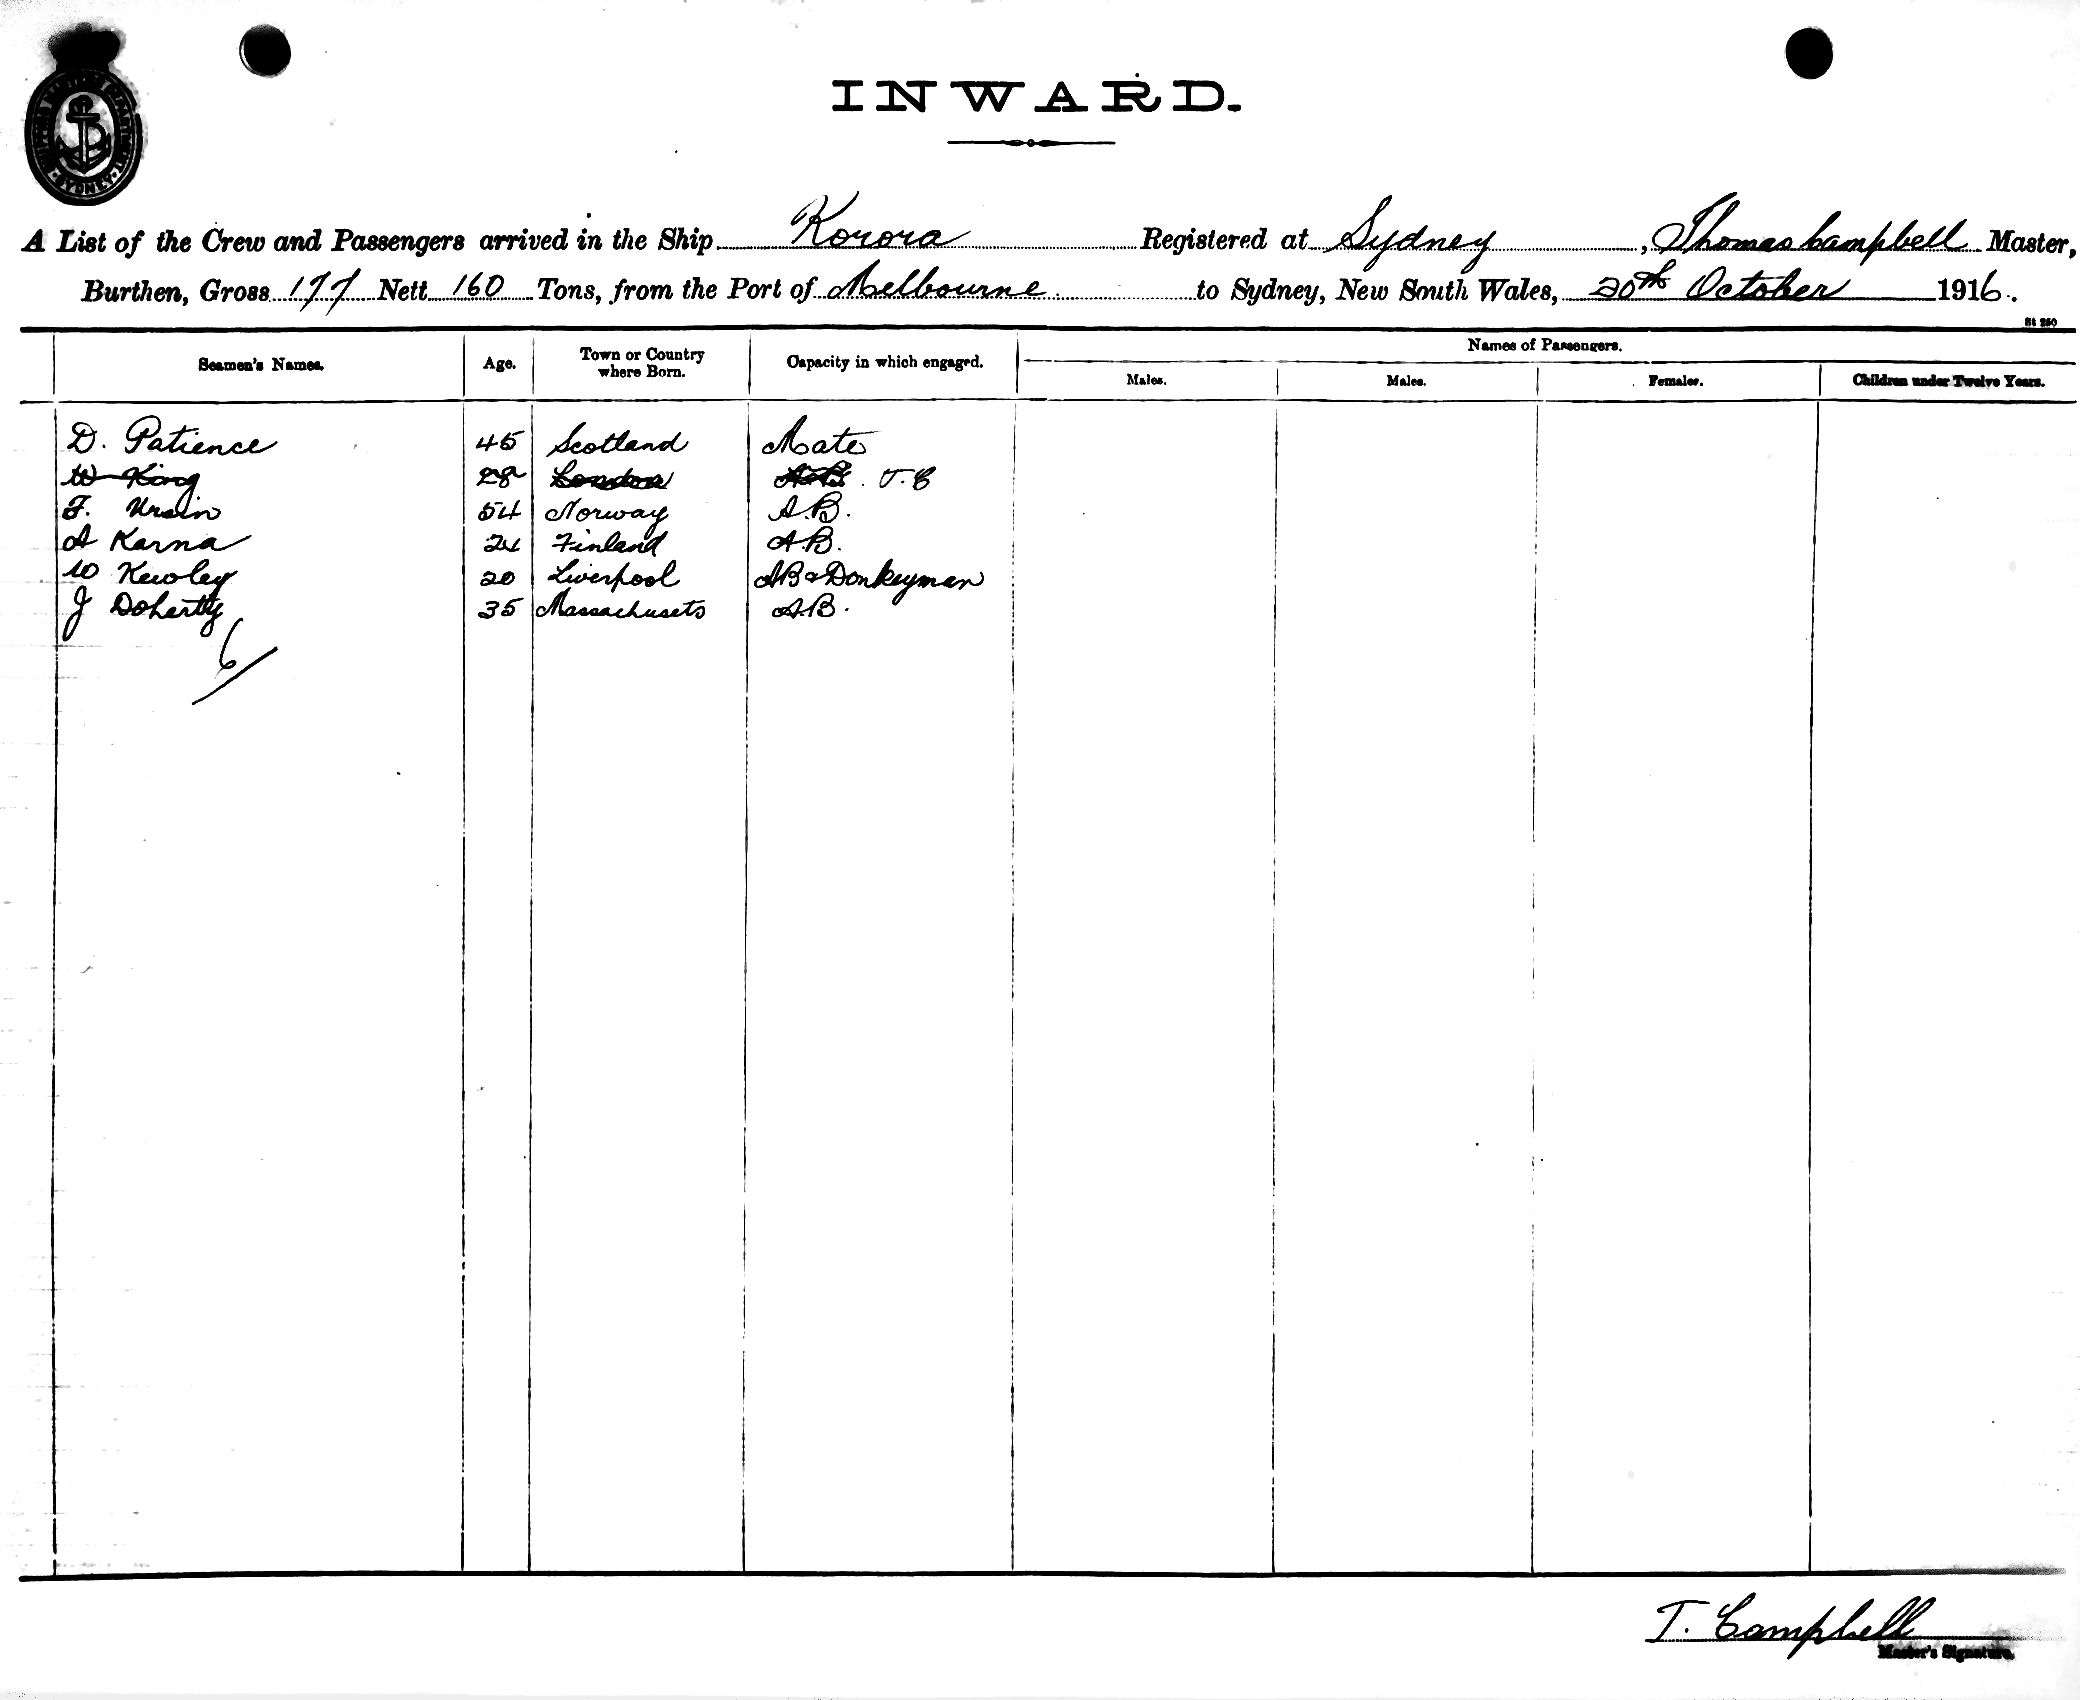 INWARD.
A List of the Crew and Passengers arrived in the Ship Korora Registered at Sydney, Thomas Campbell Master,
Burthen, Gross 177 Nett 160 Tons, from the Port of Melbourne to Sydney, New South Wales, 20th October 1916.
St 250
Seamen's Names. Age. Town or Country where Born. Capacity in which engaged. Names of Passengers.
Males. Males. Females. Children under Twelve Years.
D. Patience 45 Scotland Mate
W King 28 London A.B. T.C
F. Ursin 54 Norway A.B.
A Karna 24 Finland A.B.
W Kewley 20 Liverpool AB & Donkeyman
J Doherty 35 Massachusets A.B.
6/
T. Campbell
Master's Signature.
SYDNEY